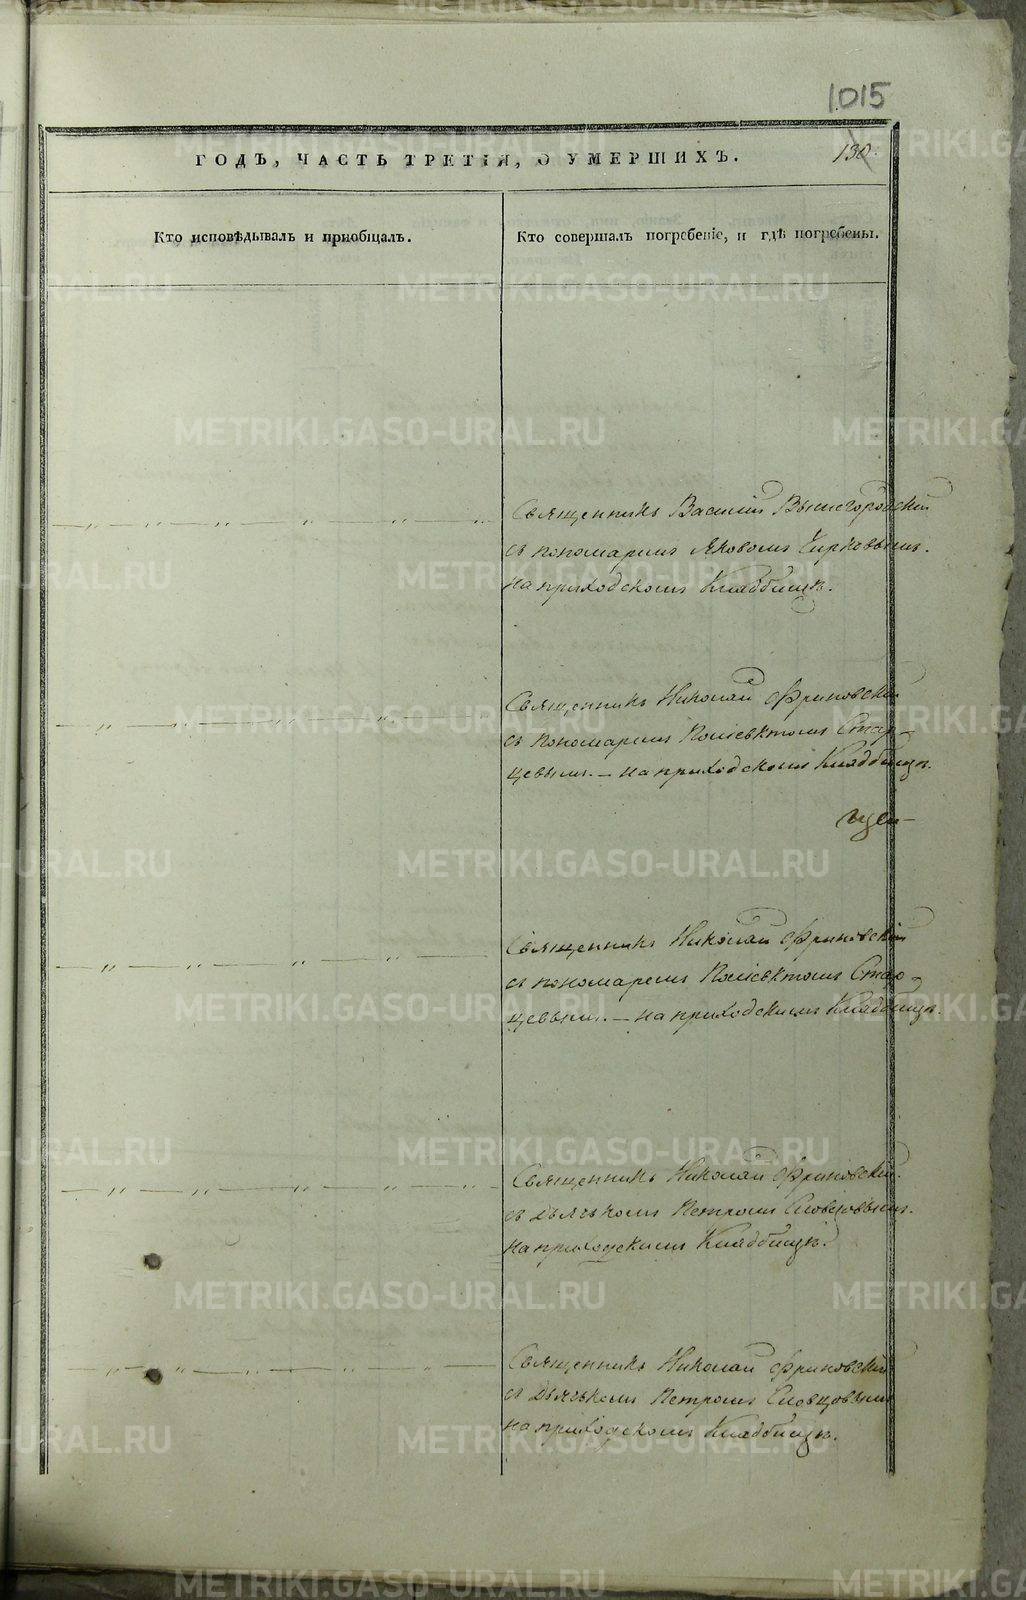 1015
ГОДЪ, ЧАСТЬ ТРЕТІЯ, О УМЕРШИХЪ.
130.
Кто исповѣдывалъ и пріобщалъ.
Кто совершалъ погребеніе, и гдѣ погребены.
Священникъ Василій Вышегородскій
съ пономаремъ Яковомъ Чирковымъ.
на приходскомъ Кладбищѣ.
Священникъ Николай Фриновскій
съ пономаремъ Поліевктомъ Стар-
цевымъ. – на приходскомъ Кладбищѣ.
Священникъ Николай Фриновскій
съ пономаремъ Поліевктомъ Стар-
цевымъ. – на приходскимъ Кладбищѣ.
Священникъ Николай Фриновскій.
съ дьячкомъ Петромъ Словцовымъ.
на приходскимъ Кладбищѣ.
Священникъ Николай Фриновскій
съ дьячкомъ Петромъ Словцовымъ
на приходскомъ Кладбищѣ.
METRIKI.GASO-URAL.RU